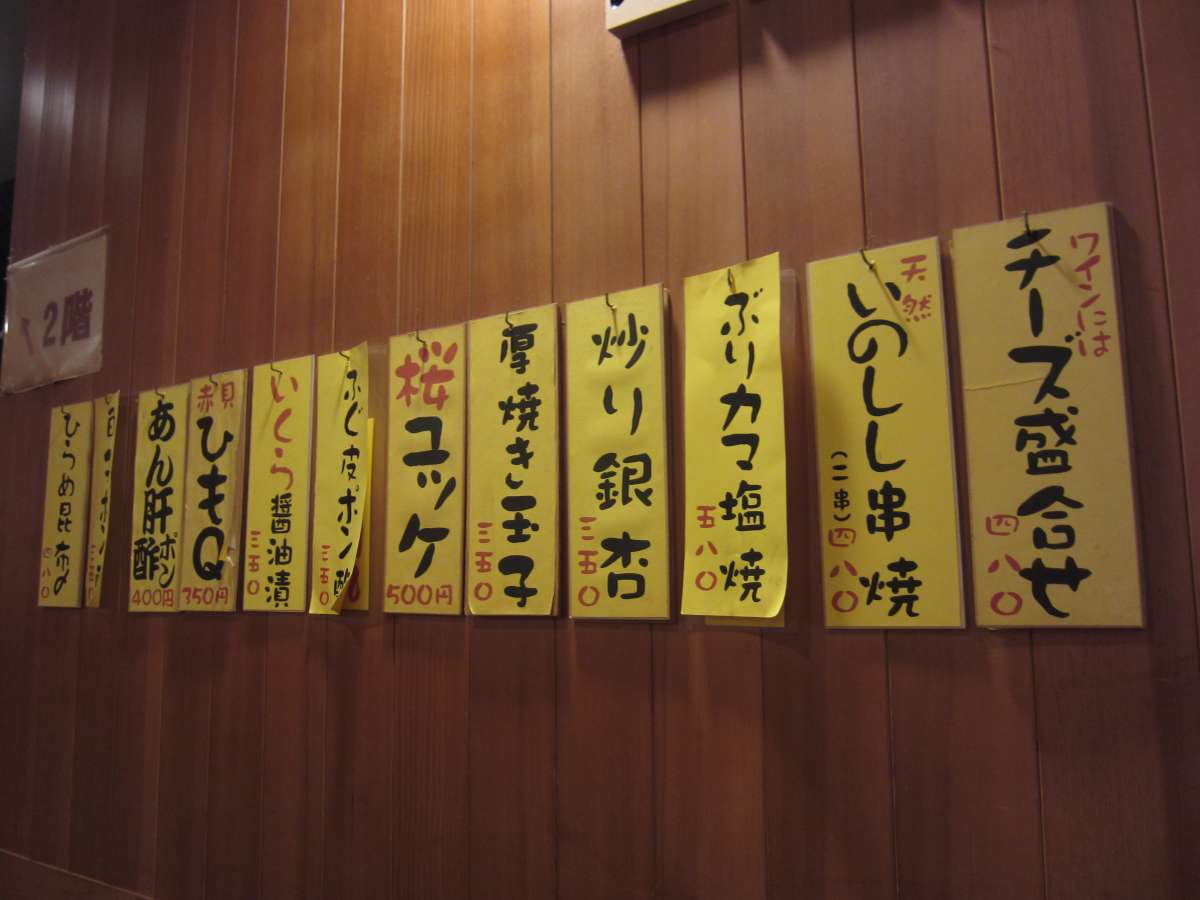 ワインには
チーズ盛合せ
四八〇
天然
いのしし串焼
(二串)四八〇
ぶりカマ塩焼
五八〇
炒り銀杏
三五〇
厚焼き玉子
三五〇
桜
ユッケ
500円
ふぐ皮ポン酢
三五〇
いくら醤油漬
三五〇
赤貝
ひもQ
350円
あん肝ポン酢
400円
ポン
ひらめ昆布〆
四八〇
←2階